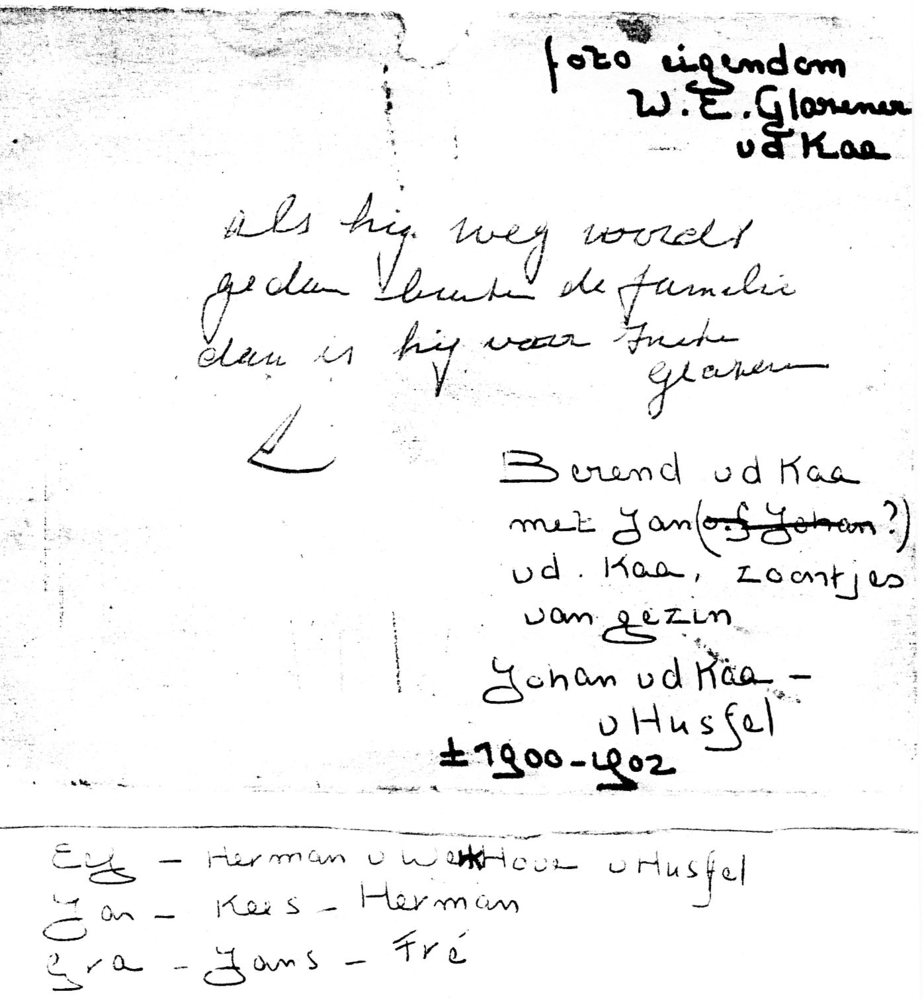 foto eigendom
W. E. Glazener
vd Kaa
als hij weg wordt
gedan buiten de familie
dan is hij voor
Glazen
Berend vd Kaa
met Jan (of Johan?)
vd. Kaa, zoontjes
van gezin
Johan vd Kaa -
v Hussel
± 1900-1902
- Herman v Werkhove v Hussel
Jan - Kees - Herman
Gra - Jans - Fré